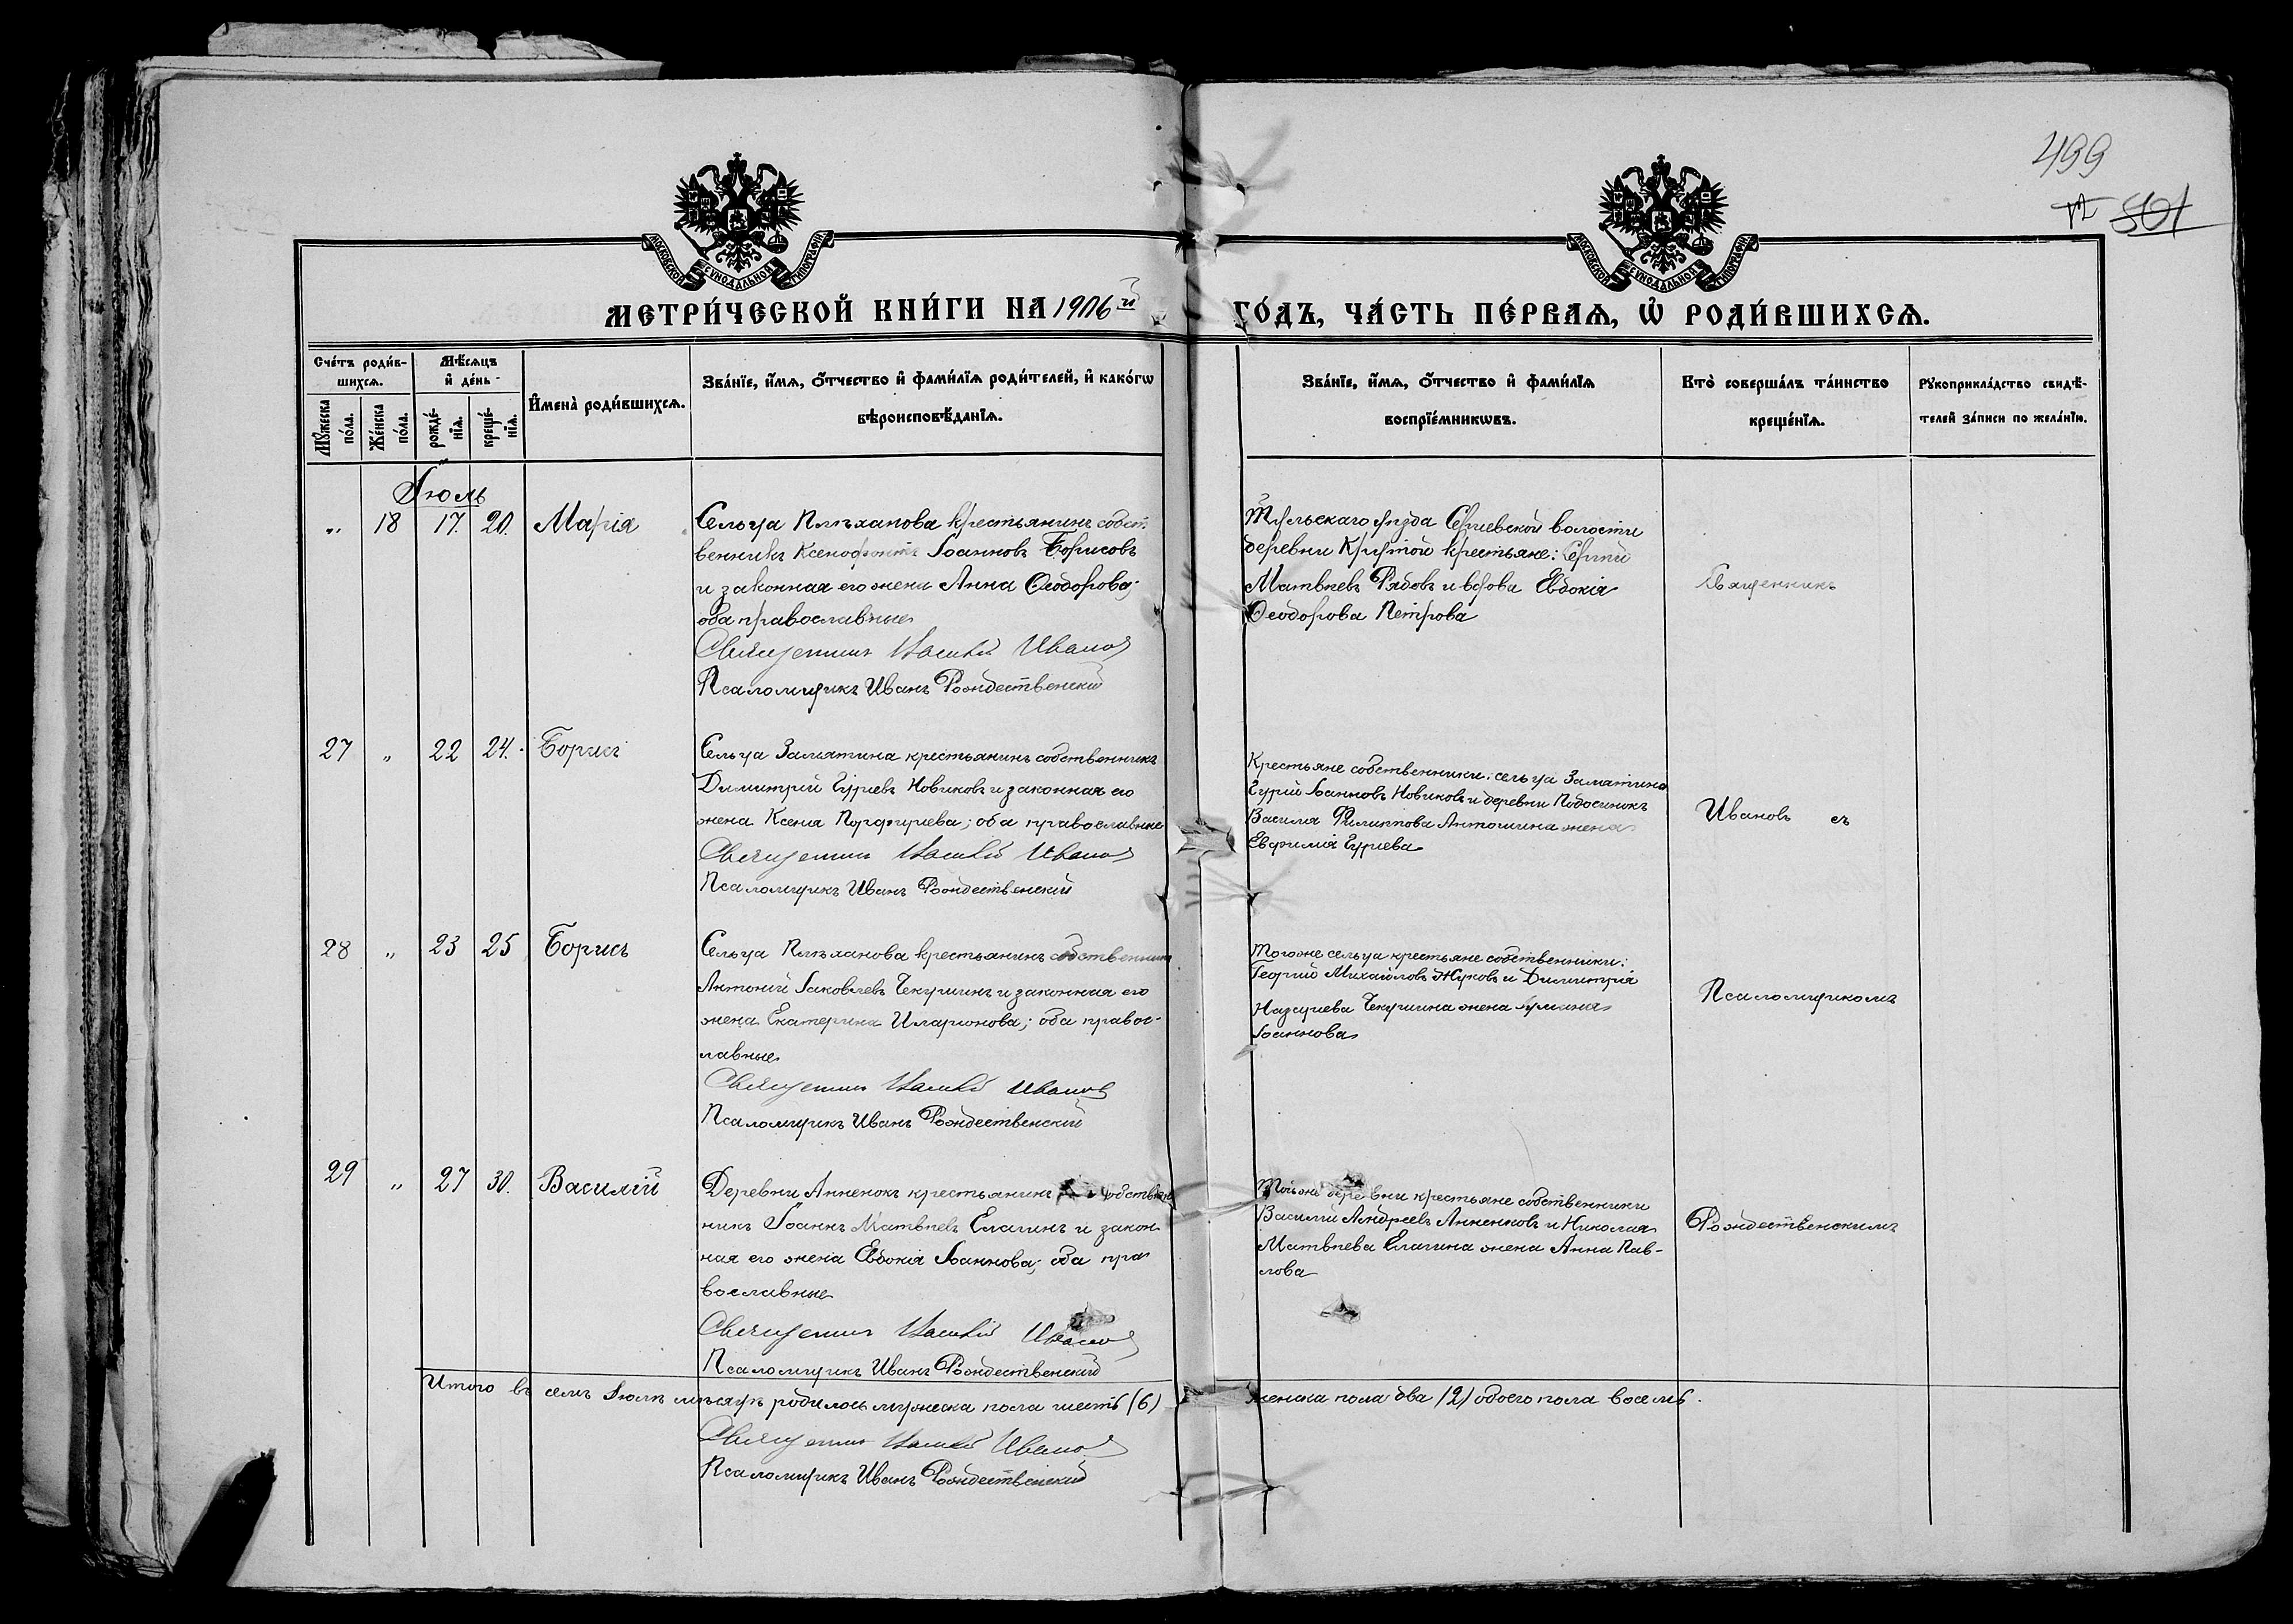 499
501
МОСКОВСКОЙ СѴНОДАЛЬНОЙ ТИПОГРАФІИ
МОСКОВСКОЙ СѴНОДАЛЬНОЙ ТИПОГРАФІИ
МЕТРИ́ЧЕСКОЙ КНИ́ГИ НА 1906й ГО́ДЪ, ЧА́СТЬ ПЕ́РВАѦ, Ѡ҆ РОДИ́ВШИХСѦ.
Сче́тъ роди́в-
шихсѧ.
Мѣ́сѧцъ
и҆ де́нь
Мꙋ́жеска
по́ла.
Же́нска
по́ла.
рожде́-
нїѧ.
креще́-
нїѧ.
И҆мена̀ роди́вшихсѧ.
Зва́нїе, и҆́мѧ, ѻ҆́тчество и҆ фами́лїѧ роди́телей, и҆ како́гѡ
вѣроисповѣ́данїѧ.
Зва́нїе, и҆́мѧ, ѻ҆́тчество и҆ фами́лїѧ
воспрїе́мникѡвъ.
Кто̀ соверша́лъ та́инство
креще́нїѧ.
Рꙋкоприкла́дство свидѣ́-
телей за́писи по жела́нїю.
Іюль
„ 18 17. 20. Марія
Сельца Плѣханова крестьянинъ собст
венникъ Ксенофонтъ Іоанновъ Борисовъ
и законная его жена Анна Ѳеодорова;
оба православные
Священникъ Василій Ивановъ
Псаломщикъ Иванъ Рождественскій
Тульскаго уѣзда Сергіевской волости
деревни Крутой крестьяне: Сергій
Матвѣевъ Рябовъ и вдова Евдокія
Ѳеодорова Петрова
Священникъ
27 „ 22 24. Борисъ
Сельца Замятина крестьянинъ собственникъ
Димитрій Гурьевъ Новиковъ и законная его
жена Ксенія Порфирьева; оба православные
Священникъ Василій Ивановъ
Псаломщикъ Иванъ Рождественскій
Крестьяне собственники: сельца Замятина
Гурій Іоанновъ Новиковъ и деревни Подосинокъ
Василія Филиппова Антошина жена
Евфимія Гурьева
Ивановъ съ
28 „ 23 25 Борисъ
Сельца Плѣханова крестьянинъ собственникъ
Антоній Іаковлевъ Чекушинъ и законная его
жена Екатерина Иларіонова; оба правос-
лавные
Священникъ Василій Ивановъ
Псаломщикъ Иванъ Рождественскій
Тогоже сельца крестьяне собственники:
Георгій Михайловъ Жуковъ и Димитрія
Назарьева Чекушина жена
Іоаннова
Псаломщикомъ
29 „ 27 30. Василій
Деревни Анненокъ крестьянинъ собствен
никъ Іоаннъ Матвѣевъ Елагинъ и закон
ная его жена Евдокія Іоаннова; оба пра
вославные
Священникъ Василій Ивановъ
Псаломщикъ Иванъ Рождественскій
Тойже деревни крестьяне собственники
Василій Андреевъ Анненковъ и Николая
Матвѣева Елагина жена Анна Пав-
лова
Рождественскимъ
Итого въ семъ Іюлѣ мѣсяцѣ родилось мужеска пола шесть (6) женска пола два (2) обоего пола восемь.
Священникъ Василій Ивановъ
Псаломщикъ Иванъ Рождественскій